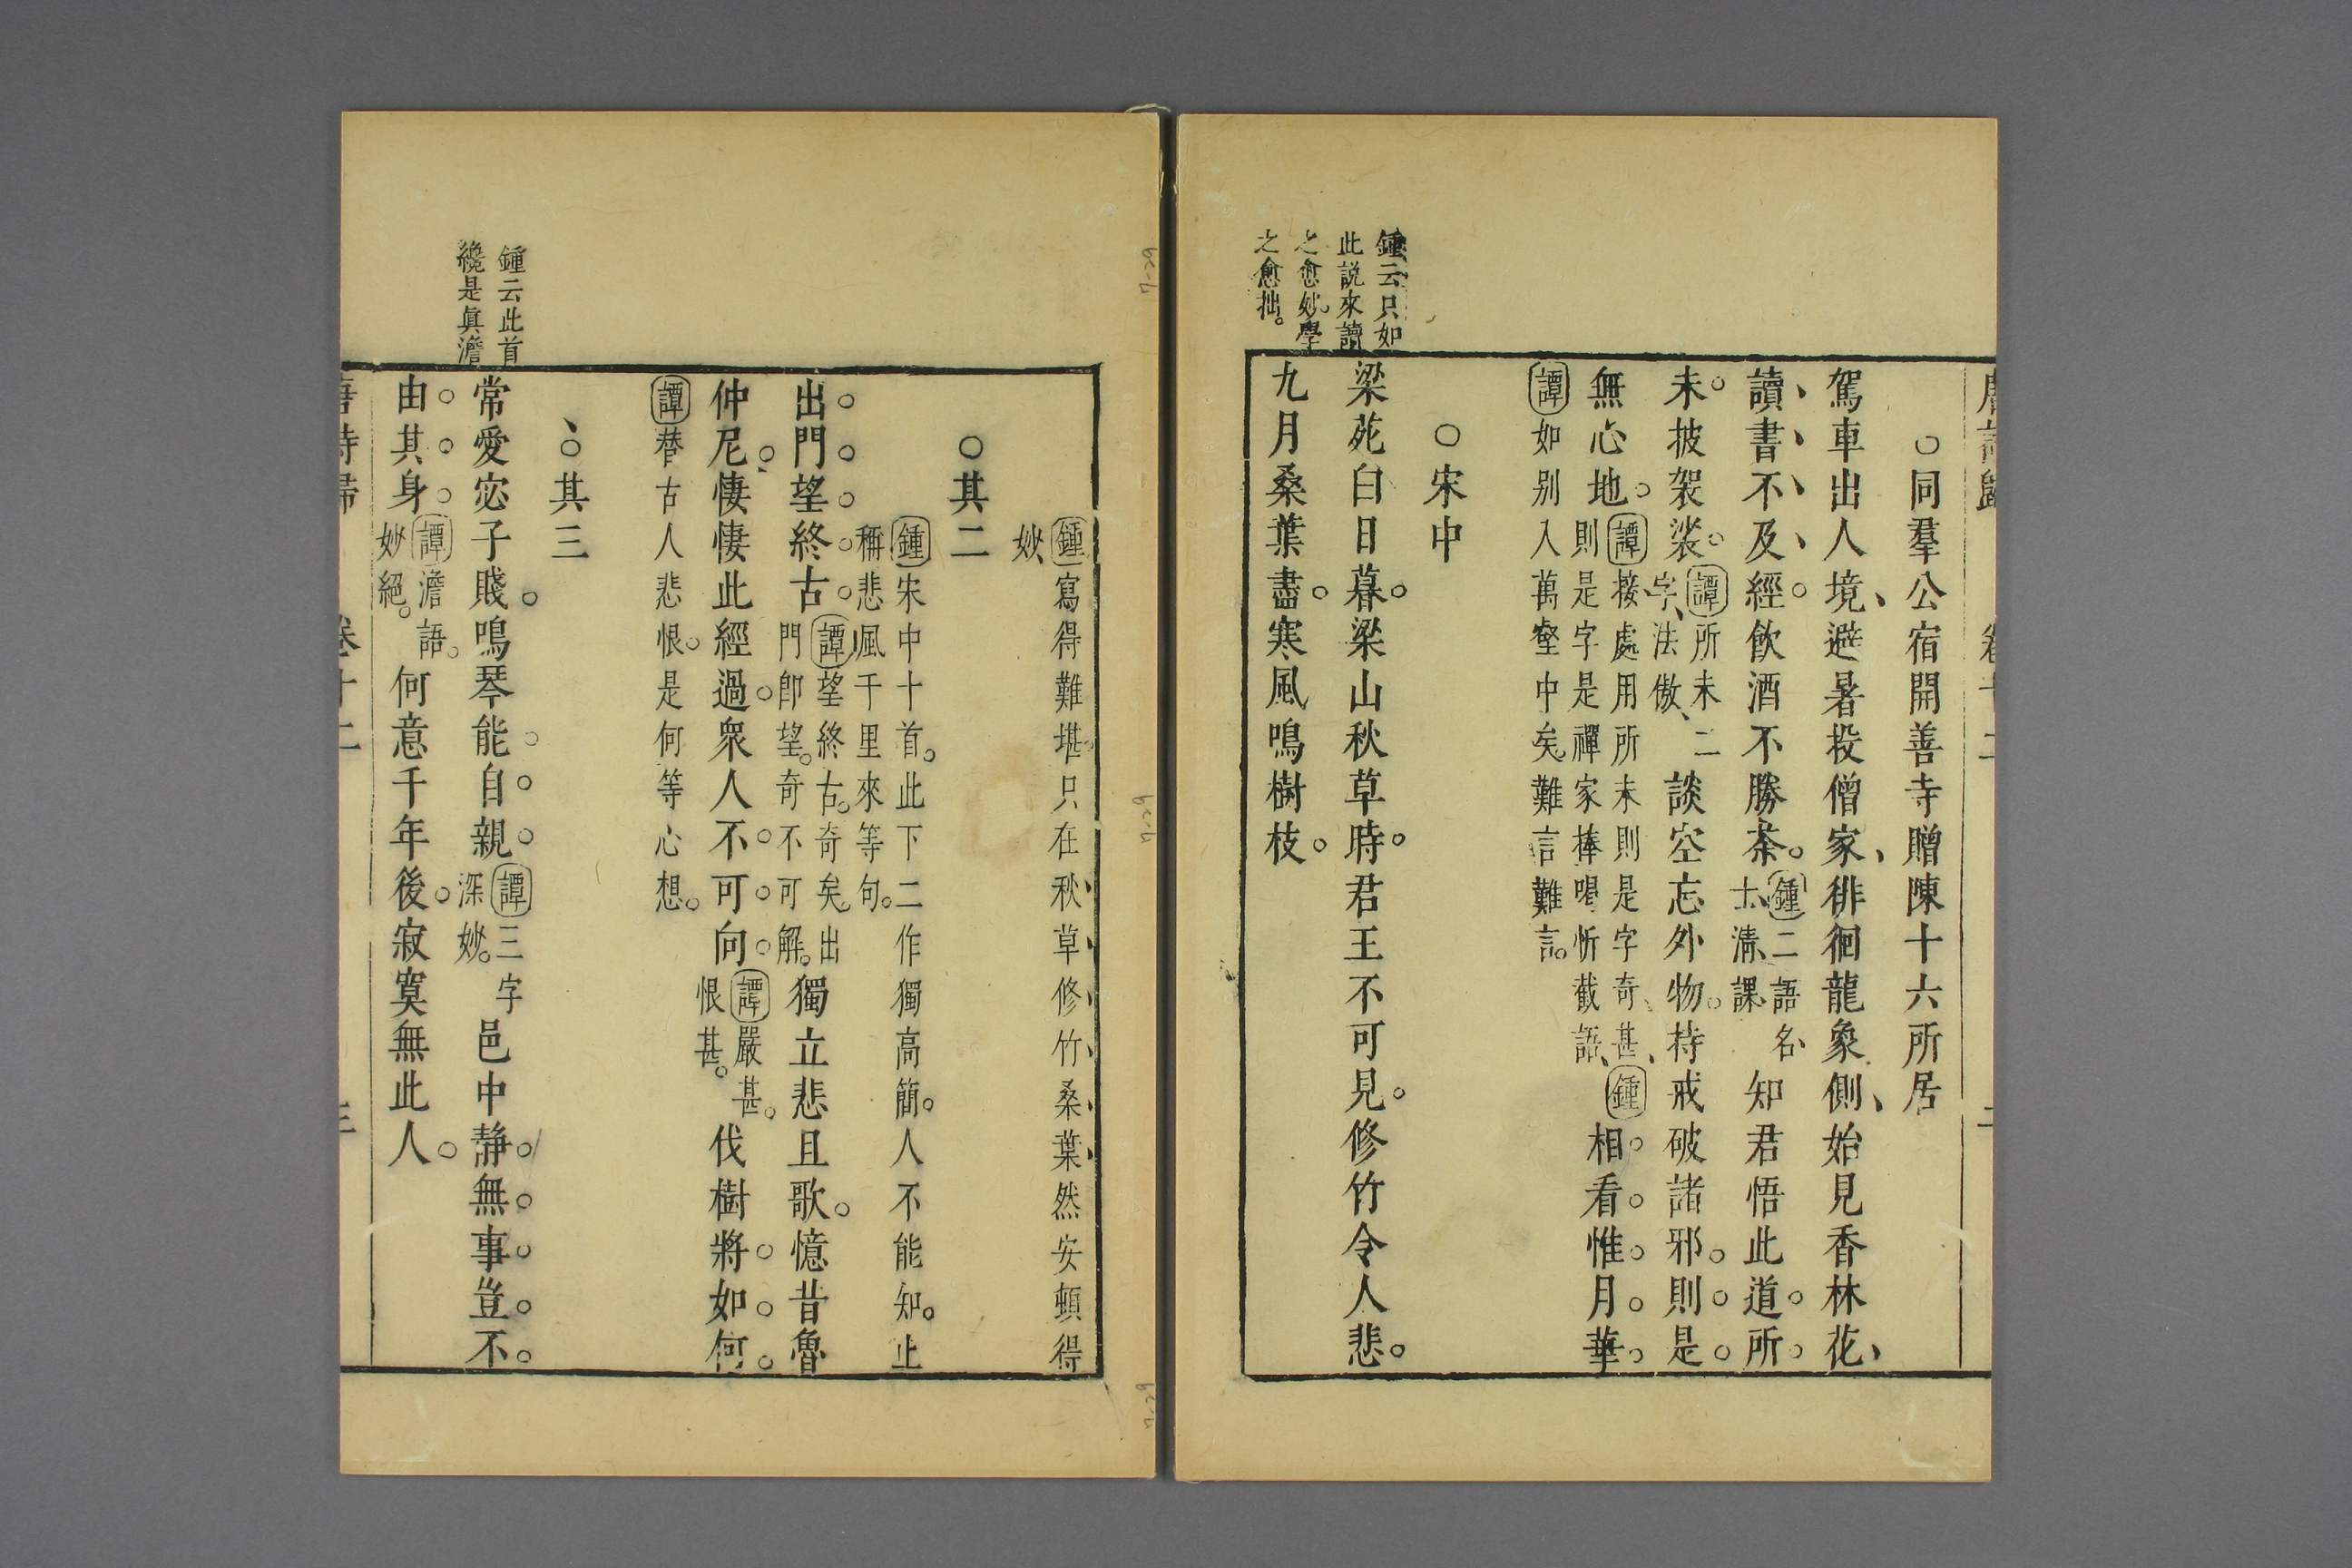 ○同羣公宿開善寺贈陳十六所居
駕車出人境避暑投僧家徘徊龍象側始見香林花
讀書不及經飲酒不勝茶鍾二語名士清課知君悟此道所
未披袈裟譚所未二字法傲談空忘外物持戒破諸邪則是
無心地譚接處用所未則是字奇甚則是字是禪家捧喝斬截語鍾相看惟月華
譚如別入萬壑中矣難言難言
○宋中
鍾云只如
此説來讀
之愈妙學
之愈拙
梁苑白日暮梁山秋草時君王不可見修竹令人悲
九月桑葉盡寒風鳴樹枝
鍾寫得難堪只在秋草修竹桑葉然安頓得
妙
○其二
鍾宋中十首此下二作獨高簡人不能知止
稱悲風千里來等句
出門望終古譚望終古奇矣出門即望奇不可解獨立悲且歌憶昔魯
仲尼悽悽此經過衆人不可向譚嚴甚恨甚伐樹將如何
譚替古人悲恨是何等心想
○其三
鍾云此首
纔是眞澹
常愛宓子賤鳴琴能自親譚三字深妙邑中靜無事豈不
由其身譚澹語妙絕何意千年後寂寞無此人
唐詩歸 卷十二 三